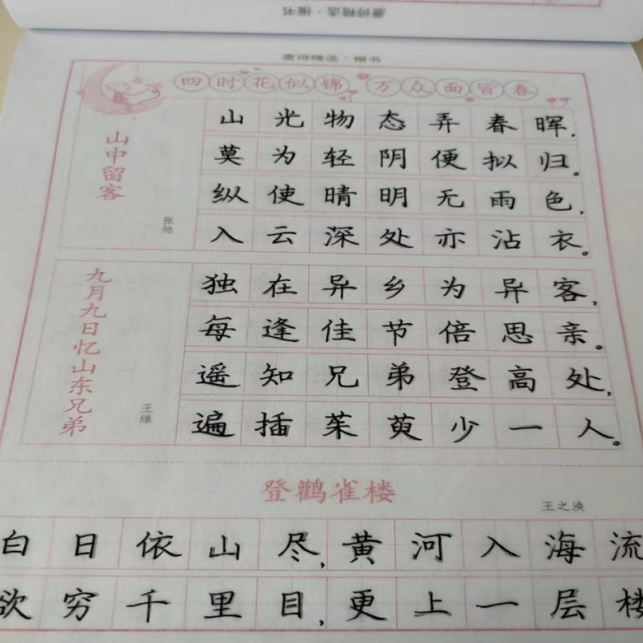 唐诗精选·楷书
唐诗精选·楷书
四时花似锦 万众面皆春
山中留客
张旭
山光物态弄春晖,
莫为轻阴便拟归。
纵使晴明无雨色,
入云深处亦沾衣。
九月九日忆山东兄弟
王维
独在异乡为异客,
每逢佳节倍思亲。
遥知兄弟登高处,
遍插茱萸少一人。
登鹳雀楼
王之涣
白日依山尽,黄河入海流
欲穷千里目,更上一层楼